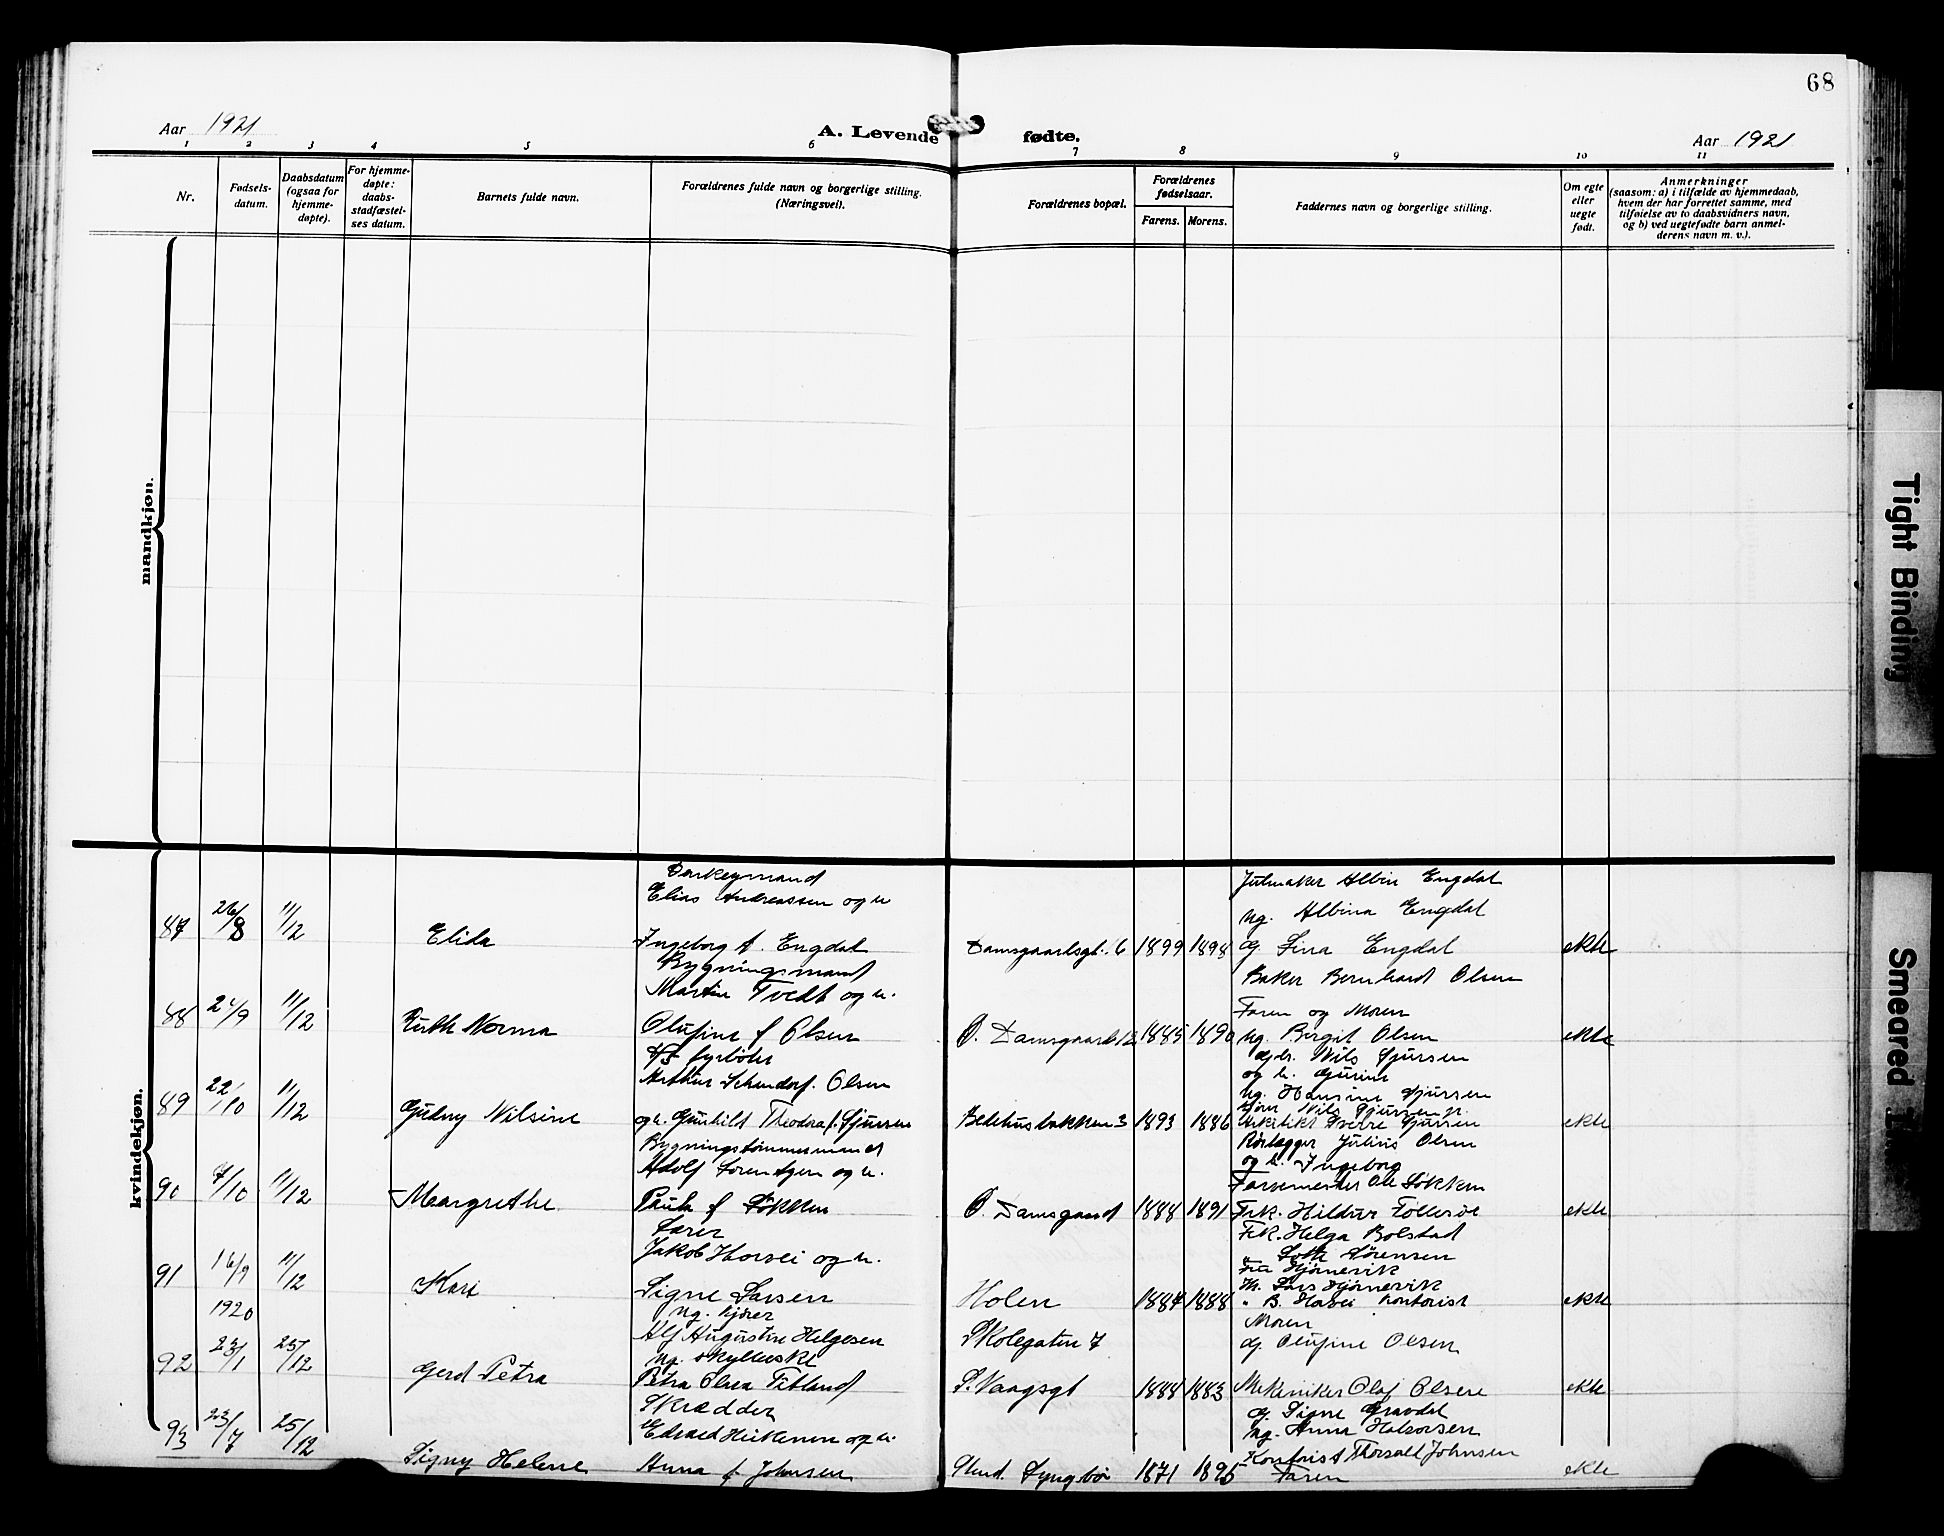 68
Aar 1921
A. Levende fødte.
Aar 1921
1 2 3 4 5 6 7 8 9 10 11
Nr.
Fødsels-
datum.
Daabsdatum
(ogsaa for
hjemme-
døpte).
For hjemme-
døpte:
daabs-
stadfæstel-
ses datum.
Barnets fulde navn.
Forældrenes fulde navn og borgerlige stilling.
(Næringsvei).
Forældrenes bopæl.
Forældrenes
fødselsaar.
Farens. Morens.
Faddernes navn og borgerlige stilling.
Om egte
eller
uegte
født.
Anmerkninger
(saasom: a) i tilfælde av hjemmedaab,
hvem der har forrettet samme, med
tilføielse av to daabsvidners navn,
og b) ved uegtefødte barn anmel-
derens navn m. v.).
mandkjøn.
kvindekjøn.
87 26/8 11/12 Elida
Donkeymand
Elias Andreassen og h
Ingeborg f. Engdal
Damsgaardsgt. 6 1899 1898
Albin Engdal
ug. Albina Engdal
og Lina Engdal
ekte
88 24/9 11/12 Ruth Norma
Bygningsmand
Martin Tvedt og h.
Olufine f Olsen
Ö. Damsgaard 12 1885 1890
Baker Bernhard Olsen
Faren og Moren
ug. Bergit Olsen
ekte
89 22/10 11/12 Gudny Nilsine
fyrböter
Arthur Olsen
og h. Gunhild Theodora f. Sjursen
Bedehusbakken 3 1893 1886
Nils Sjursen
og h. Gurine
ug. Hansine Sjursen
Nils Sjursen jr.
Sverre Sjursen
ekte
90 7/10 11/12 Margrethe
Bygningstömmermand
Adolf Sörentzen og h.
Paula f Lökken
Ö. Damsgaard 1888 1891
Rörlegger Julius Olsen
og h. Ingeborg
Farvemester Ole Lökken
Frk. Hildur
ekte
91 16/9 11/12 Kari
Lærer
Jakob Horvei og h.
Signe Larsen
Holen 1887 1888
Frk. Helga Bolstad
" Lotte Sörensen
Fru Hjörnevik
Hr. Lars Hjörnevik
" B. Horvei kontorist
ekte
92 1920 23/1 25/12 Gerd Petra
ug. kjörer
Alf Augustin Helgesen
ug. skyllerske
Petra Olsea
Skolegaten 7
S. Vaagsgt 1888 1883
Moren
og Olufine Olsen
Mekaniker Olaf Olsen
ekte
93 23/7 25/12 Signy Helene
Skrædder
Edvard og h.
Anna f Johnsen
Lyngbö 1871 1895
og Signe Gravdal
ug. Anna Halvorsen
Kontorist Thorvald Johnsen
Faren
ekte
Tight Binding
Smeared